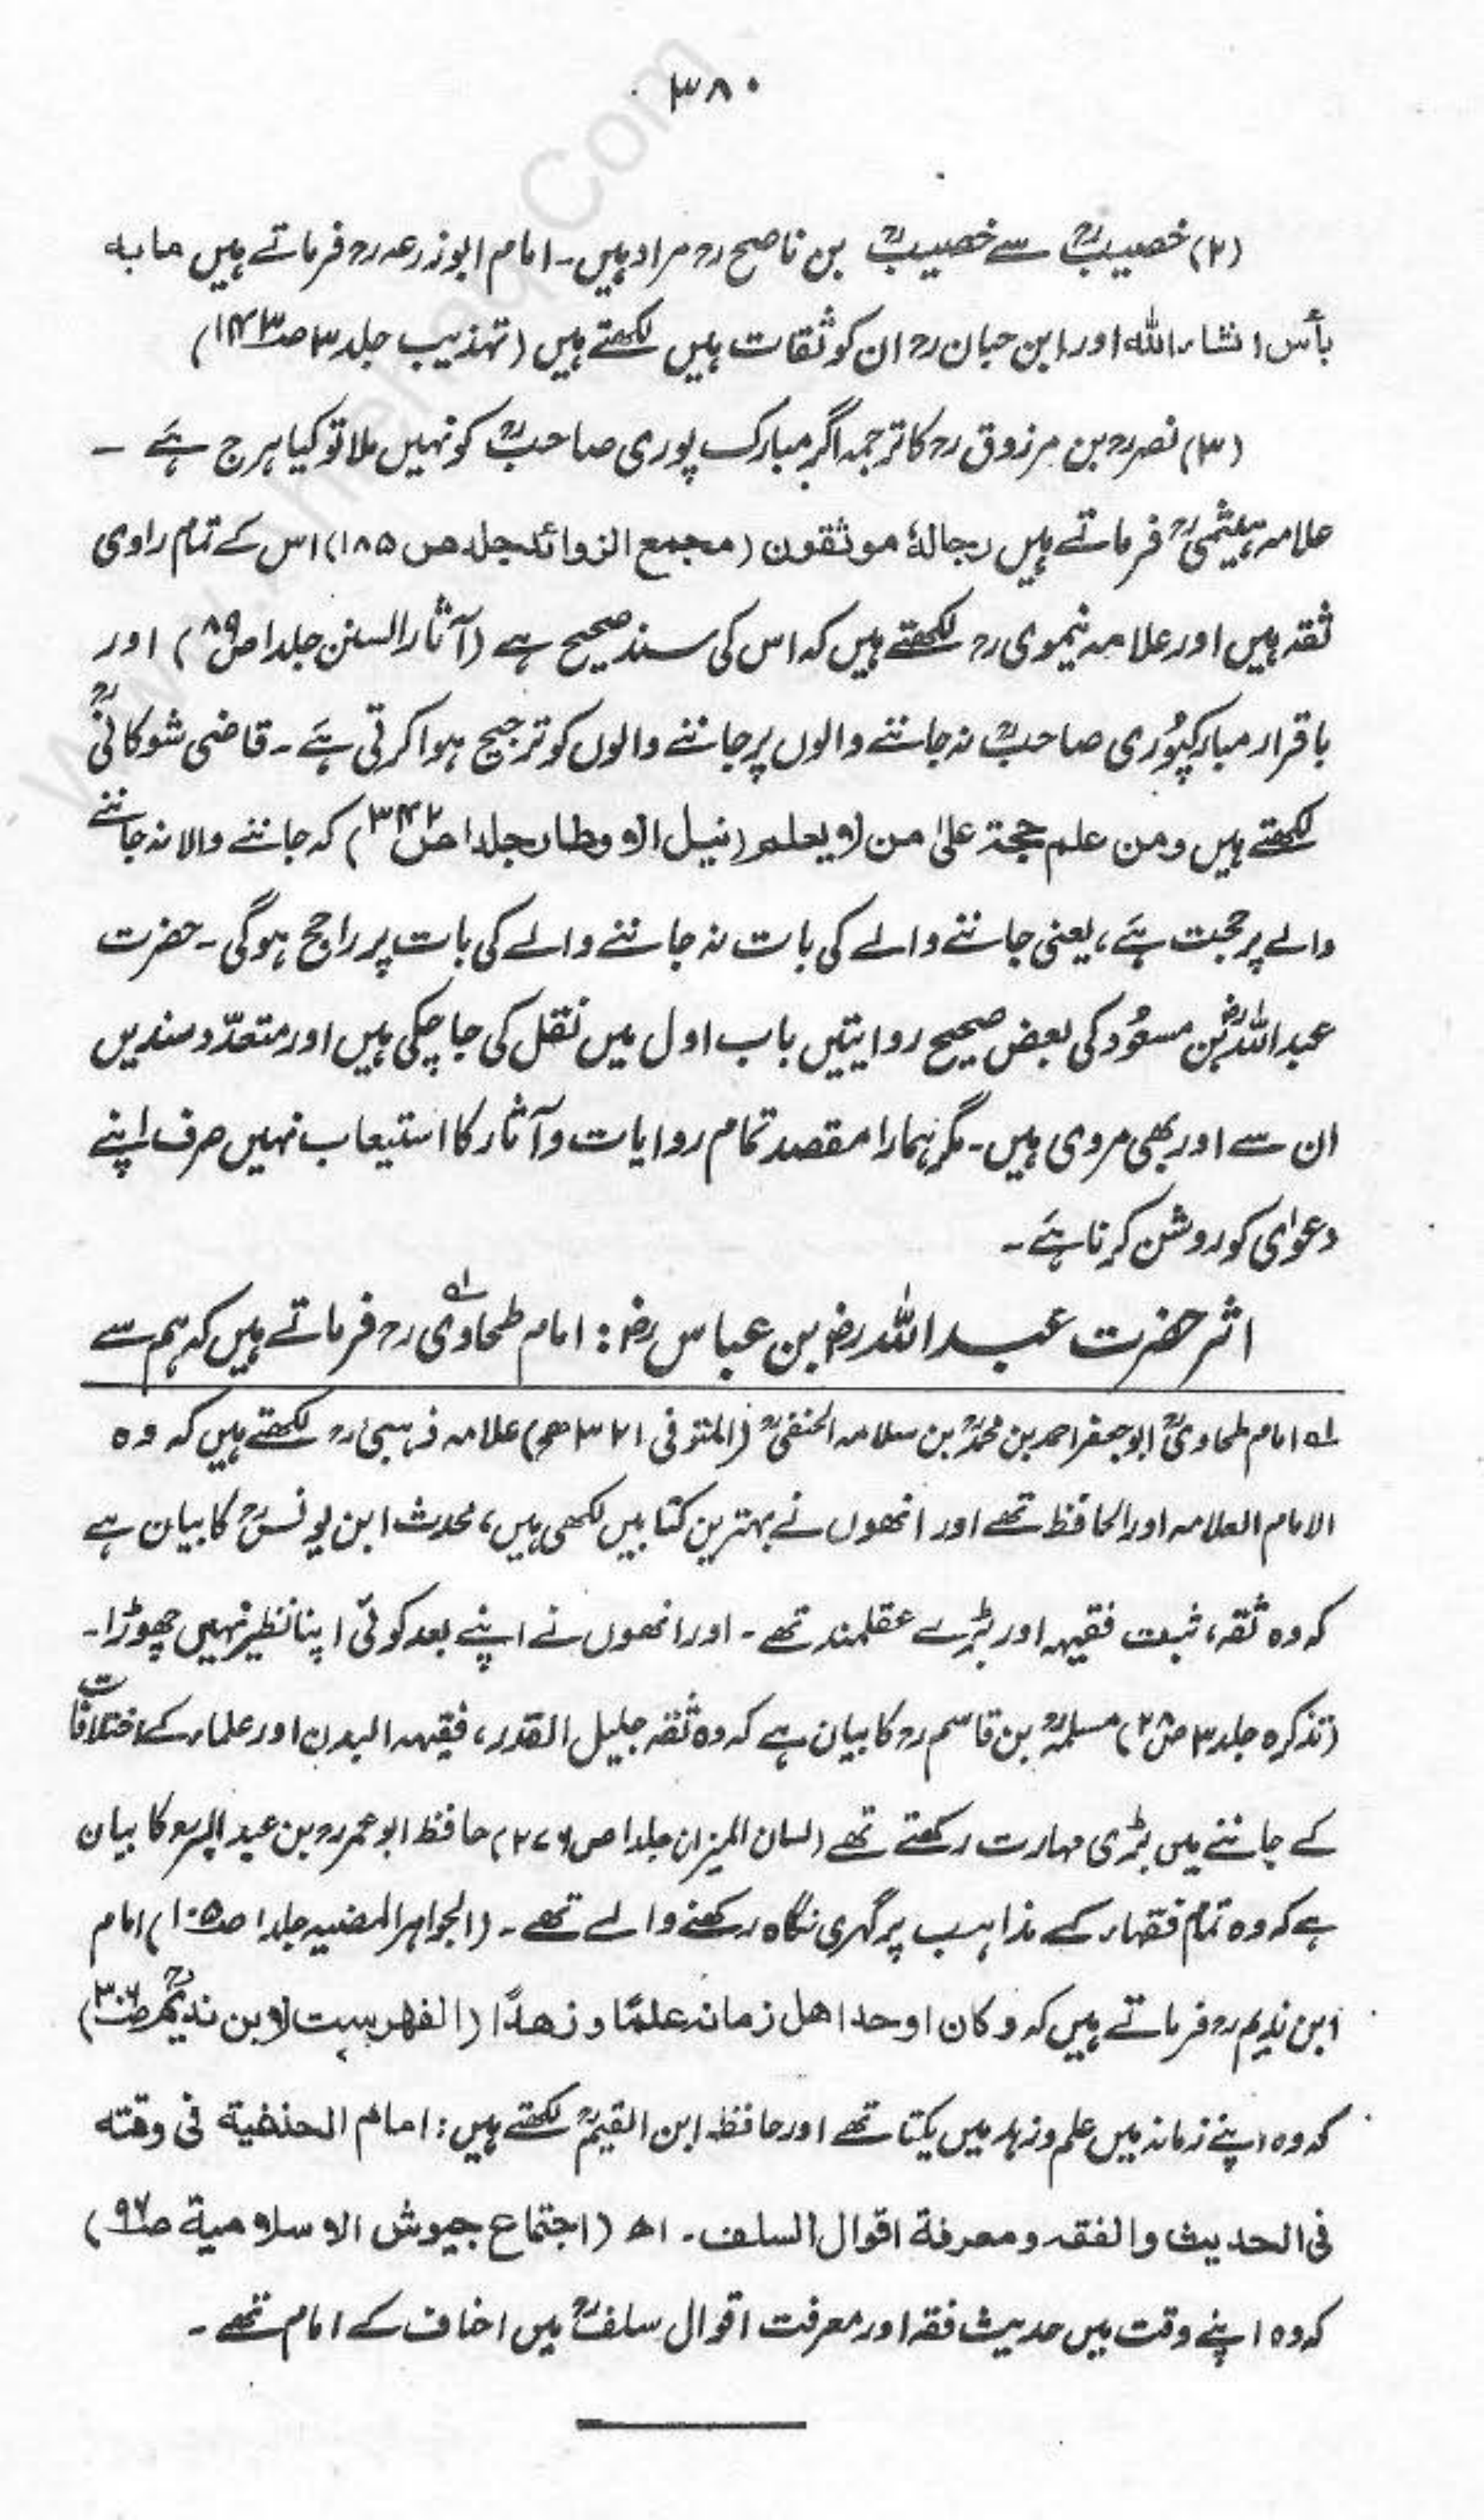 ۳۸۰
(۲) خصیبؒ سے خصیبؒ بن ناصح رح مراد ہیں۔ امام ابو زرعہ رح فرماتے ہیں ما به
بأس انشاء الله اور ابن حبان رح ان کو ثقات میں لکھتے ہیں (تہذیب جلد ۳ صـ۱۴۳)
(۳) نصر رح بن مرزوق رح کا ترجمہ اگر مبارک پوری صاحبؒ کو نہیں ملا تو کیا ہرج ہے ۔
علامہ ہیثمیؒ فرماتے ہیں رجالهٗ موثقون (مجمع الزوائد جلد ص ۱۸۵) اس کے تمام راوی
ثقہ ہیں اور علامہ نیموی رح لکھتے ہیں کہ اس کی سند صحیح ہے (آثار السنن جلد ا ص ۸۹) اور
باقرار مبارکپوُری صاحبؒ نہ جاننے والوں پر جاننے والوں کو ترجیح ہوا کرتی ہے ۔ قاضی شوکانیؒ
لکھتے ہیں ومن علم حجة علیٰ من لا یعلم (نیل الاوطار جلد ا ص ۳۴۲) کہ جاننے والا نہ جاننے
والے پر حجت ہے، یعنی جاننے والے کی بات نہ جاننے والے کی بات پر راجح ہو گی ۔ حضرت
عبد اللہؓ بن مسعوُد کی بعض صحیح روایتیں باب اول میں نقل کی جا چکی ہیں اور متعدّد سندیں
ان سے اور بھی مروی ہیں ۔ مگر ہمارا مقصد تمام روایات و آثار کا استیعاب نہیں صرف اپنے
دعوٰی کو روشن کرنا ہے ۔
اثر حضرت عبد اللہ رض بن عباس رض : امام طحاوی لہ رح فرماتے ہیں کہ ہم سے
لہ امام طحاویؒ ابو جعفر احمد بن محمدؒ بن سلامہ الحنفیؒ (المتوفی ۳۲۱ھ) علامہ ذہبی رح لکھتے ہیں کہ وہ
الامام العلامہ اور الحافظ تھے اور انھوں نے بہترین کتابیں لکھی ہیں، محدث ابن یونسؒ کا بیان ہے
کہ وہ ثقہ، ثبت فقیہہ اور بڑے عقلمند تھے ۔ اور انھوں نے اپنے بعد کوئی اپنا نظیر نہیں چھوڑا ۔
(تذکرہ جلد ۳ ص ۲۸) مسلمہؒ بن قاسم رح کا بیان ہے کہ وہ ثقہ جلیل القدر، فقیہہ البدن اور علماء کے اختلافات
کے جاننے میں بڑی مہارت رکھتے تھے (لسان المیزان جلد ا ص ۲۷۶) حافظ ابو عمر رح بن عبد البر رح کا بیان
ہے کہ وہ تمام فقہاء کے مذاہب پر گہری نگاہ رکھنے والے تھے ۔ (الجواہر المضیہ جلد ا صـ۱۰۵) امام
ابن ندیم رح فرماتے ہیں کہ وکان اوحد اهل زمانه علمًا و زهدًا (الفهرست لابن ندیمؒ صـ۳۰۶)
کہ وہ اپنے زمانہ میں علم و زہد میں یکتا تھے اور حافظ ابن القیمؒ لکھتے ہیں : امام الحنفية فی وقته
فی الحدیث والفقه ومعرفة اقوال السلف ۔ اھ (اجتماع جیوش الاسلامیة صـ۹۶)
کہ وہ اپنے وقت میں حدیث فقہ اور معرفت اقوال سلفؒ میں احناف کے امام تھے ۔